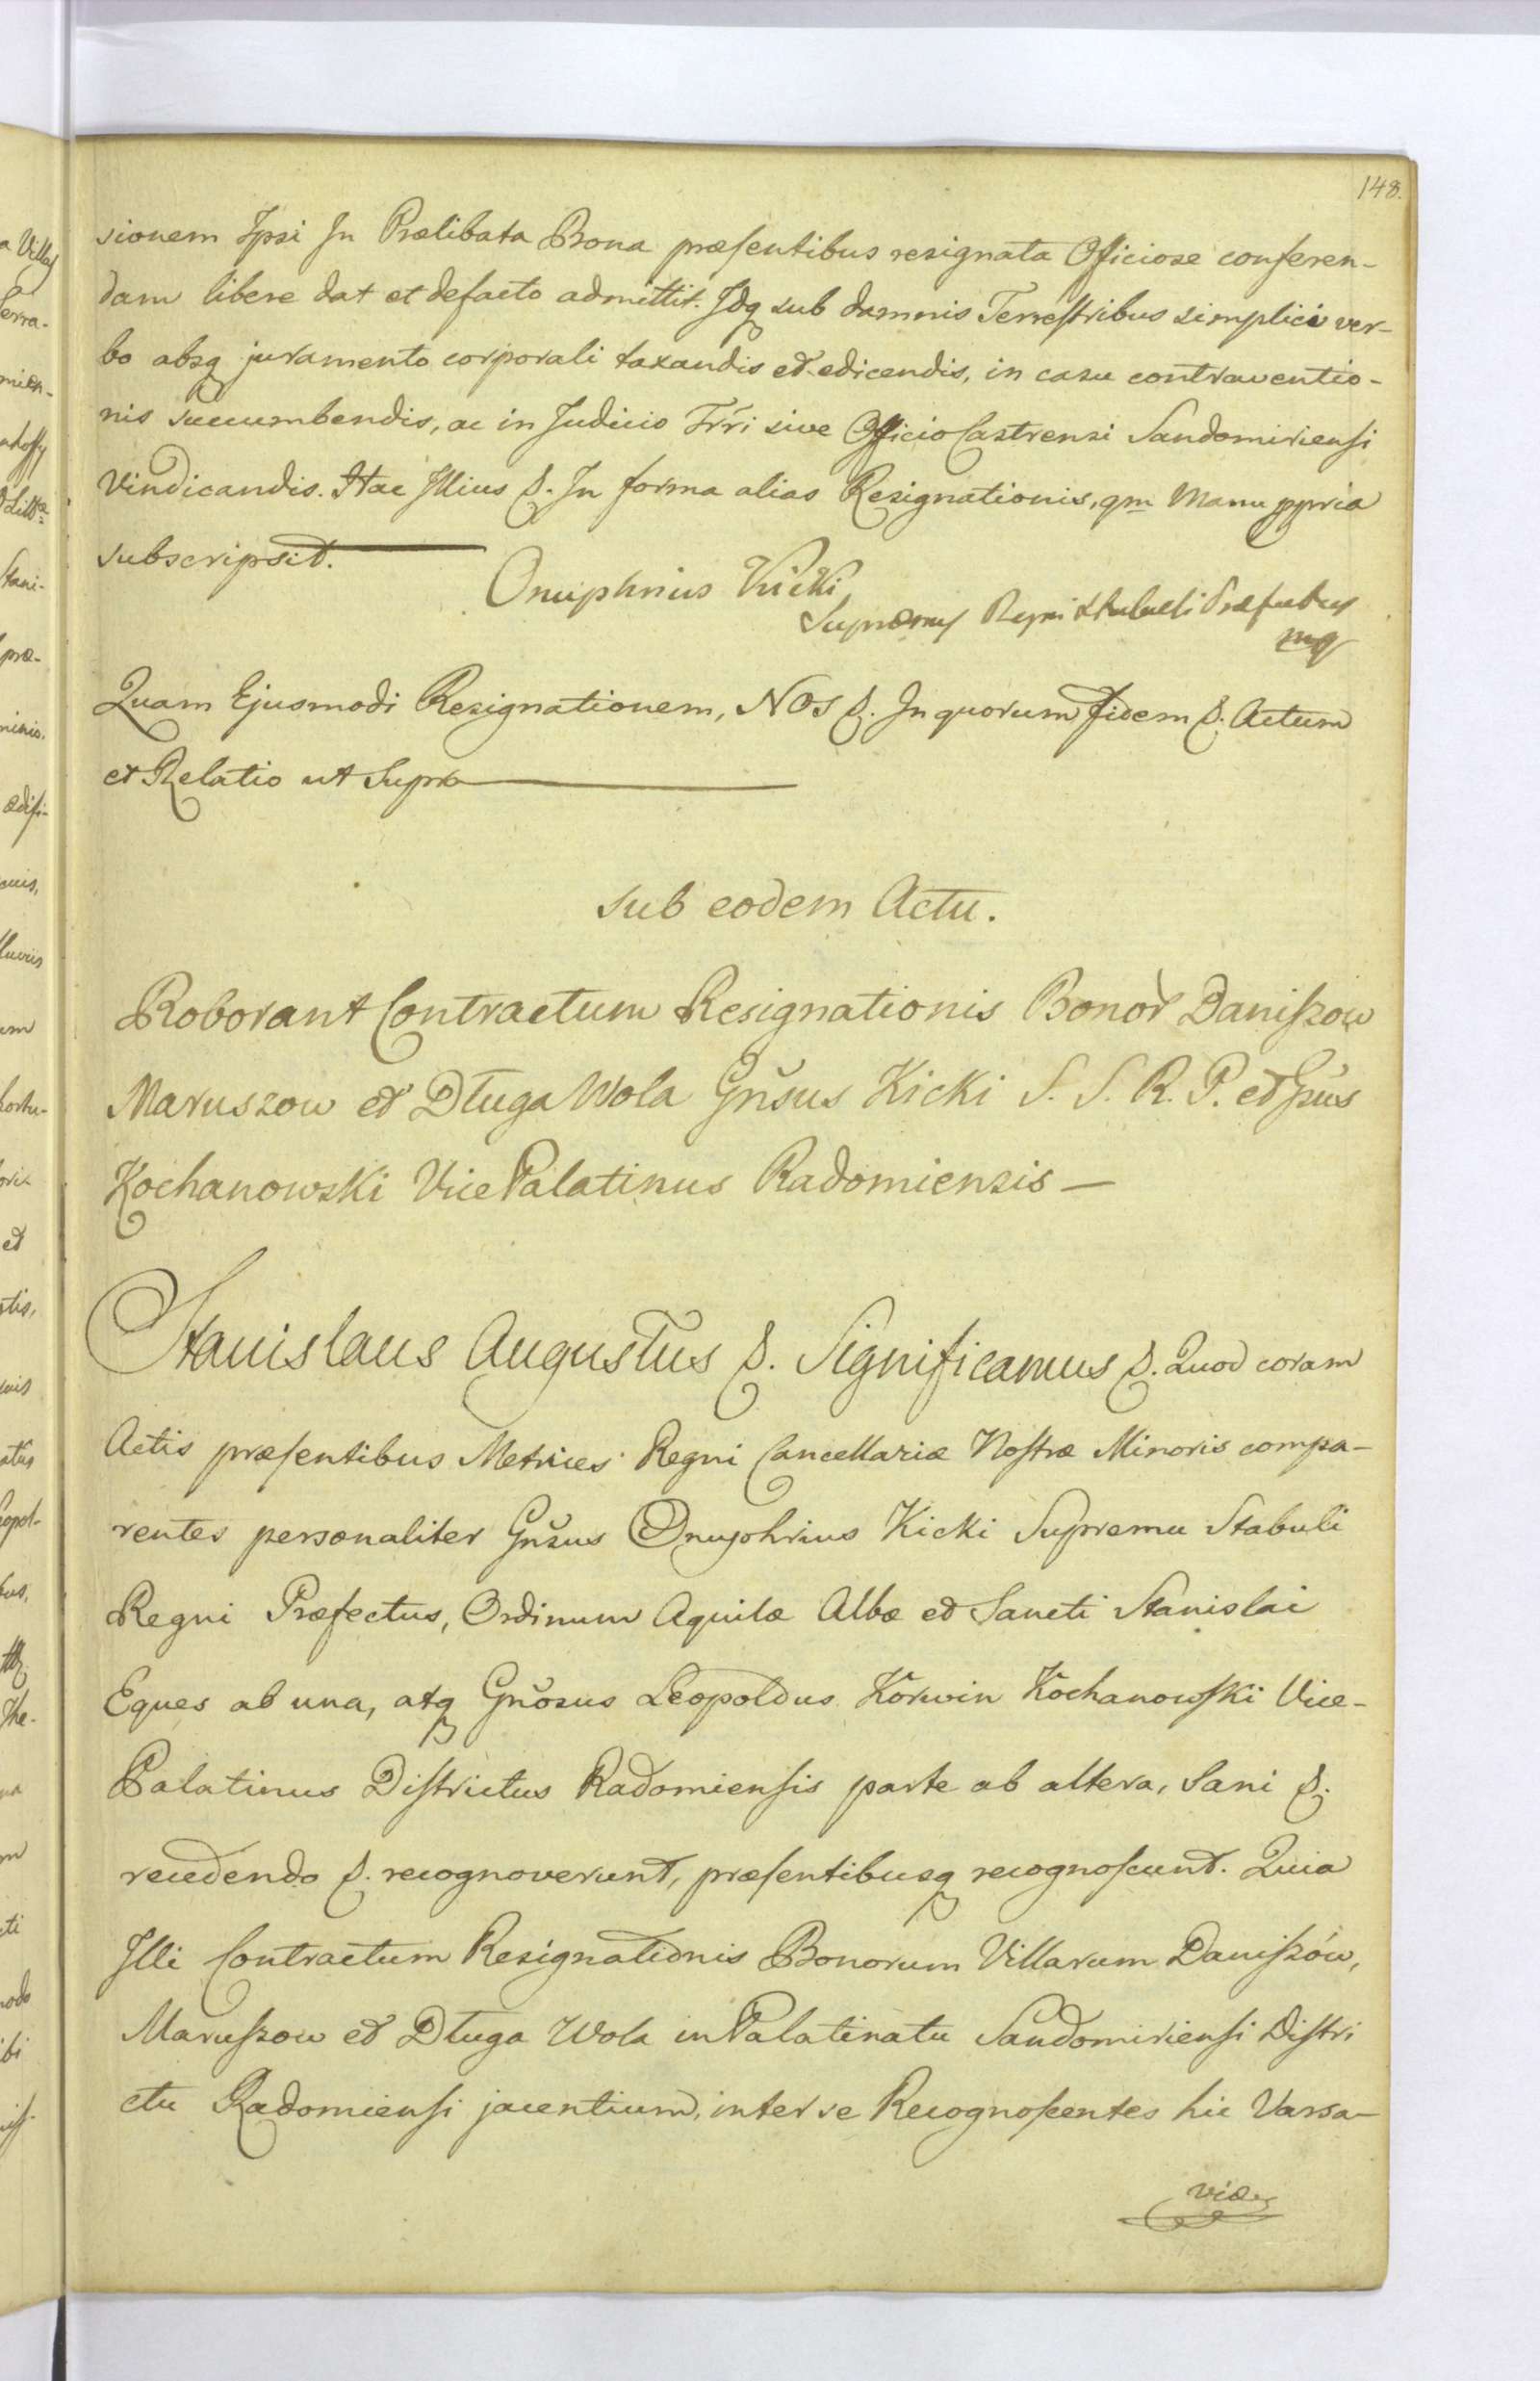 148.
sionem Ipsi In Prælibata Bona præsentibus resignata Officiose conferen-
dam libere dat et defacto admittit. Idq sub damnis Terrestribus simplici ver-
bo absq juramento corporali taxandis et edicendis, in casu contraventio-
nis succumbendis, ac in Judicio Trri sive Officio Castrensi Sandomiriensi
Vindicandis. Hac Illius &. In forma alias Resignationis, qm Manu ppria
subscripsit.
Onuphrius Kicki
Supremus Regni Stabuli Præfectus
mp
Quam Ejusmodi Resignationem, NOS &. In quorum fidem &. Actum
et Relatio ut Supra
sub eodem Actu.
Roborant Contractum Resignationis Bonor Daniszow
Maruszow et Długa Wola Gnsus Kicki S. S. R. P. et Gsus
Kochanowski Vice Palatinus Radomiensis —
Stanislaus Augustus &. Significamus &. Quod coram
Actis præsentibus Metrices Regni Cancellariæ Nostræ Minoris compa-
rentes personaliter Gnsus Onuphrius Kicki Supremu Stabuli
Regni Præfectus, Ordinum Aquilæ Albæ et Sancti Stanislai
Eques ab una, atq Gnosus Leopoldus Korwin Kochanowski Vice-
Palatinus Districtus Radomiensis parte ab altera, Sani &.
recedendo &. recognoverunt, præsentibusq recognoscunt. Quia
Illi Contractum Resignationis Bonorum Villarum Daniszów,
Maruszow et Długa Wola in Palatinatu Sandomiriensi Distri
ctu Radomiensi jacentium, inter se Recognoscentes hic Varsa-
viæ